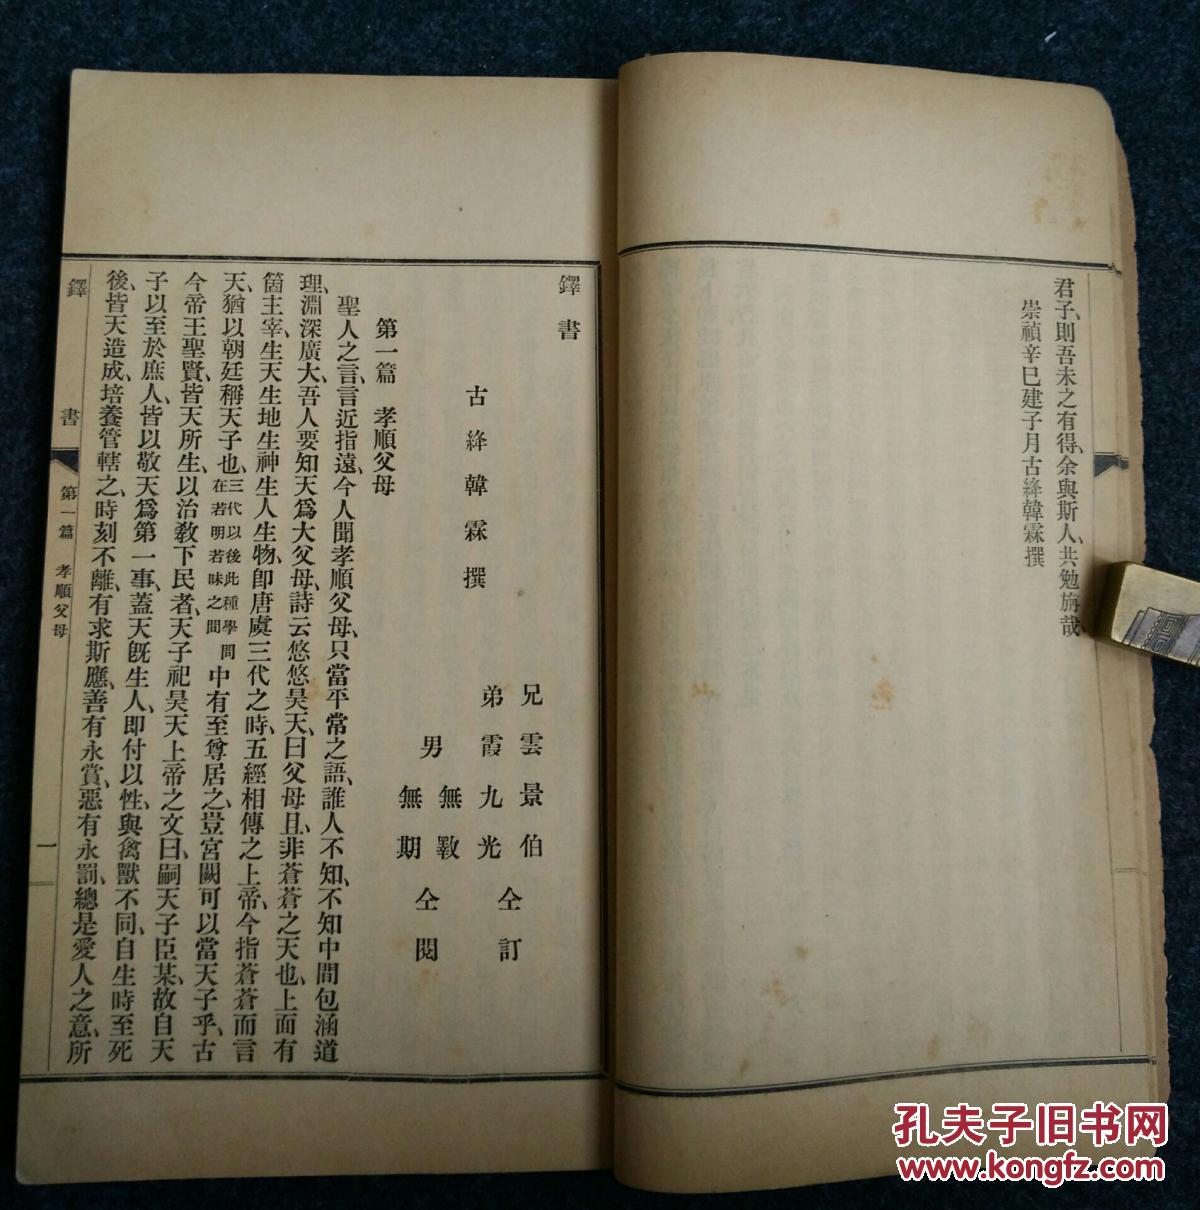 君子、則吾未之有得、余與斯人、共勉旃哉、
崇禎辛巳建子月古絳韓霖撰
鐸書
古絳韓霖撰
兄雲景伯
弟霞九光
仝訂
男
無斁
無期
仝閱
第一篇 孝順父母
聖人之言、言近指遠、今人聞孝順父母、只當平常之語、誰人不知、不知中間包涵道
理、淵深廣大、吾人要知天爲大父母、詩云悠悠昊天、曰父母且、非蒼蒼之天也、上面有
箇主宰、生天生地生神生人生物、卽唐虞三代之時、五經相傳之上帝、今指蒼蒼而言
天、猶以朝廷稱天子也、三代以後此種學問在若明若昧之間中有至尊居之、豈宮闕可以當天子乎、古
今帝王聖賢、皆天所生、以治敎下民者、天子祀昊天上帝之文曰、嗣天子臣某、故自天
子以至於庶人、皆以敬天爲第一事、蓋天旣生人、卽付以性、與禽獸不同、自生時至死
後、皆天造成、培養管轄之、時刻不離、有求斯應、善有永賞、惡有永罰、總是愛人之意、所
鐸書 第一篇 孝順父母 一
孔夫子旧书网
www.kongfz.com